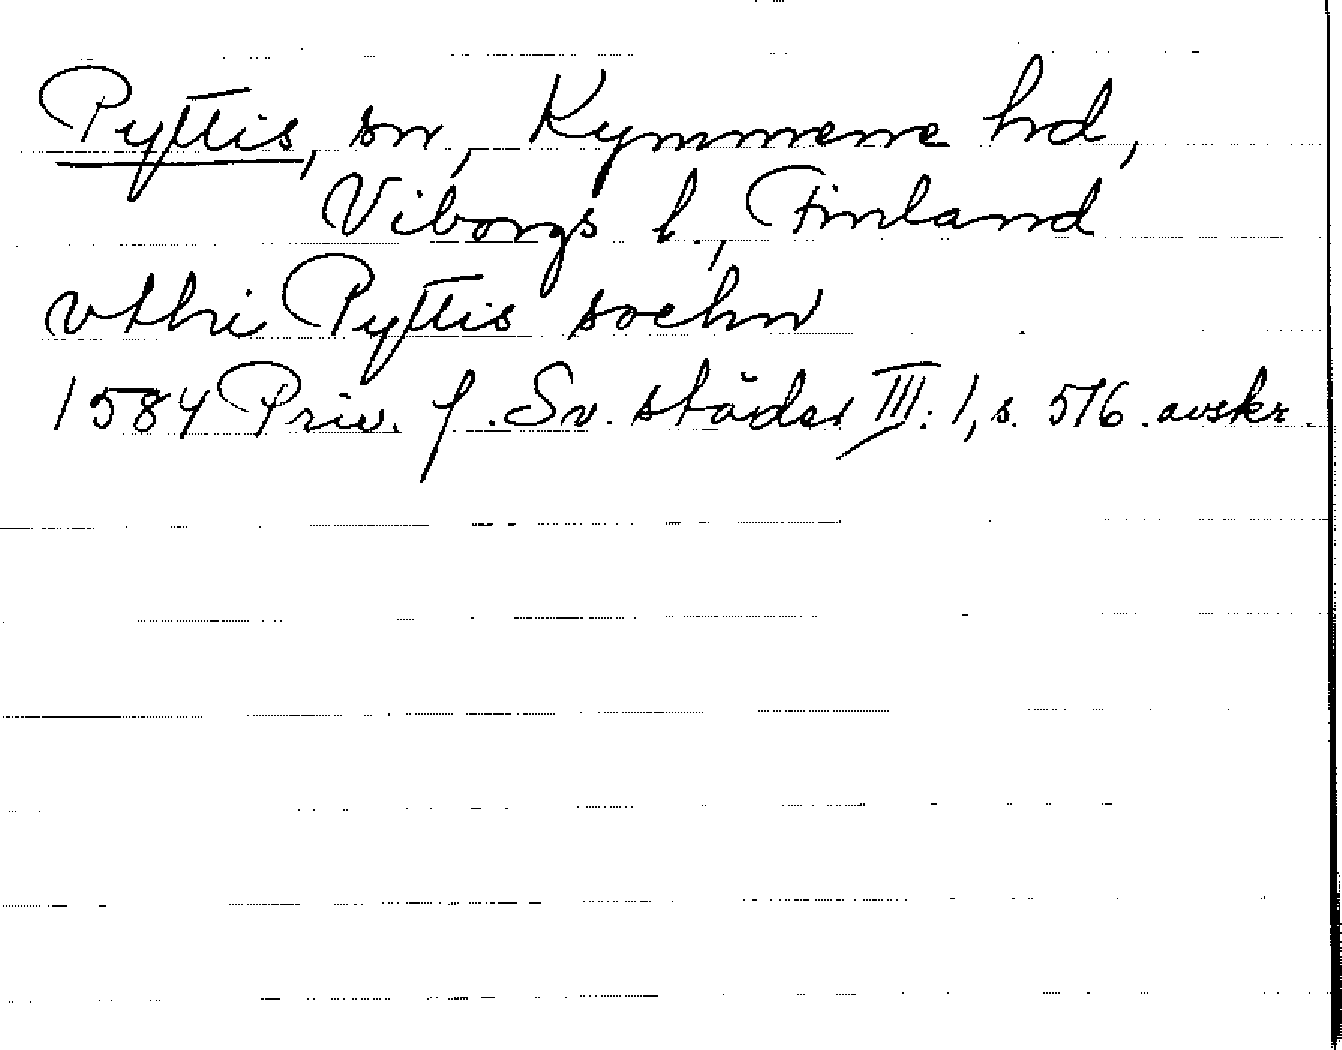 Pyttis, sn, Kymmene hd,
Viborgs l, Finland
vthi Pyttis sochn
1584 Priv. f. Sv. städer III: 1, s. 576 avskr.